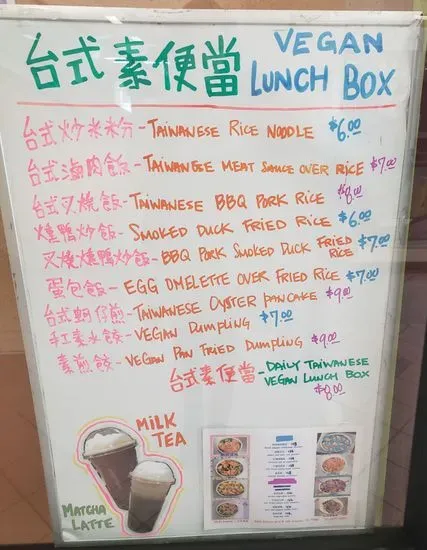 台式素便當 VEGAN LUNCH BOX
台式炒米粉 - TAIWANESE RICE NOODLE $6.00
台式滷肉飯 - TAIWANESE MEAT SAUCE OVER RICE $7.00
台式叉燒飯 - TAIWANESE BBQ PORK RICE $8.00
燻鴨炒飯 - SMOKED DUCK FRIED RICE $6.00
叉燒燻鴨炒飯 - BBQ PORK SMOKED DUCK FRIED RICE $7.00
蛋包飯 - EGG OMELETTE OVER FRIED RICE $7.00
台式蚵仔煎 - TAIWANESE OYSTER PANCAKE $9.00
手工素水餃 - VEGAN DUMPLING $7.00
素煎餃 - VEGAN PAN FRIED DUMPLING $9.00
台式素便當 - DAILY TAIWANESE VEGAN LUNCH BOX $8.00
MILK TEA
MATCHA LATTE